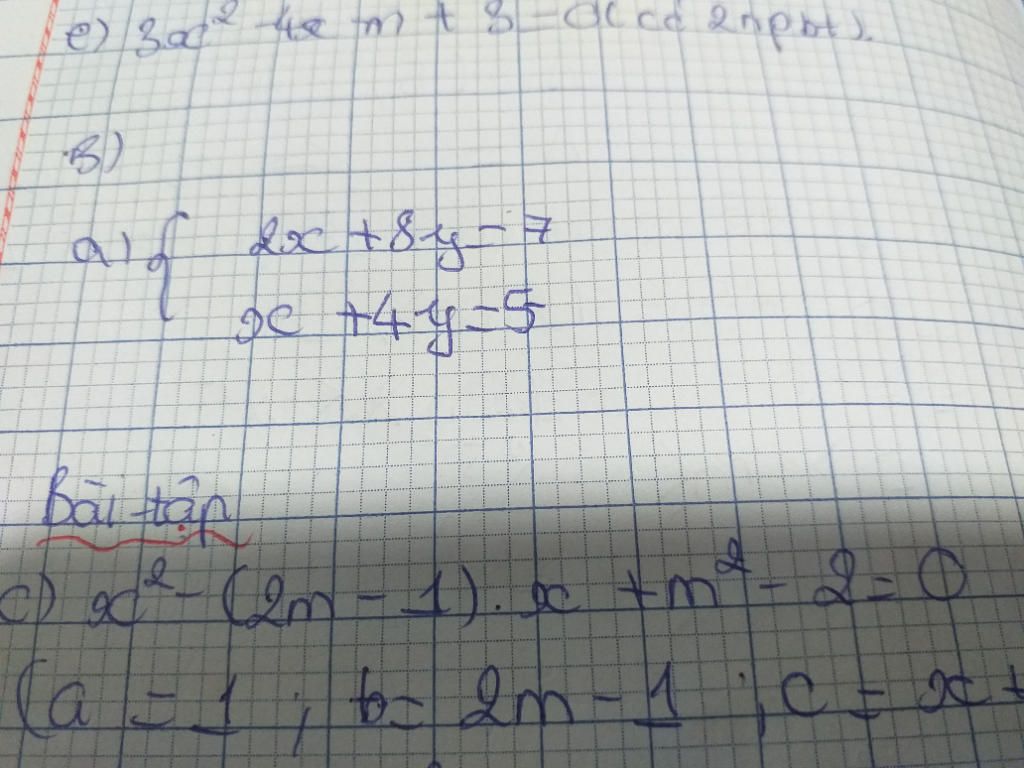 e) 3x² - 4x m + 3 = 0 ( có 2 npbt).
B)
a) { 2x + 8y = 7
x + 4y = 5
Bài tập
c) x² - (2m - 1). x + m² - 2 = 0
(a = 1 ; b = 2m - 1 ; c = x +